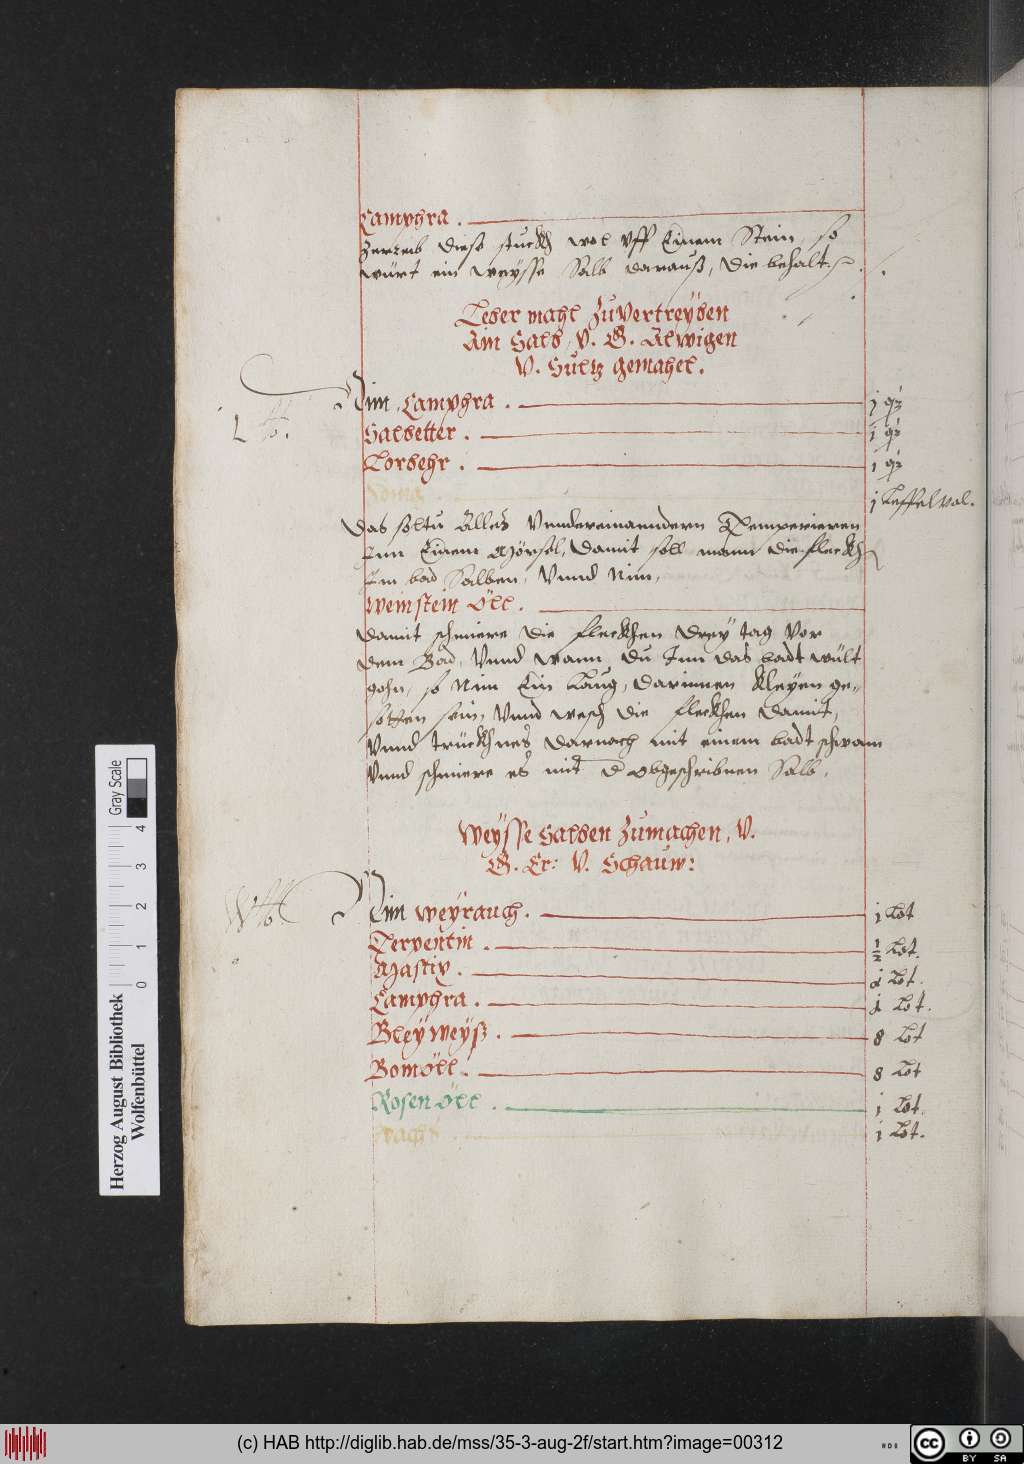 Camphra.
Zerreib diese stuckh wol vff Einem Stein, so
würt ein weÿsse Salb darauß, die behalt.
Leber mahl Zu Vertreÿben
Ain Salb, V. G. Alwigen
V. Sultz gemahel.
Nim, Camphra. j q͛
Salbetter. j q͛
Lorbehr. j q͛
Honig j Leffel vol.
das soltu Alles Vndereinanndern Temperieren
Inn Einem Mörsel, damit soll mann die fleckh
Im bad Salben, Vnnd Nim,
Weinstein Öll.
damit schmiere die fleckhen dreÿ tag Vor
dem Bad, Vnnd wann du Inn das badt wült
gohn, so Nim Ein Laug, darinnen kleÿen ge-
sotten sein, Vnnd wesch die fleckhen damit,
Vnnd trückhnes darnach mit einem badt schwam
Vnnd schmiere es mit d obgeschribnen Salb.
Weÿsse Salben Zumachen, V.
G. Er: V. Schauw:
Nim Weÿrauch. j Lot
Terpentin. ½ Lot.
Mastix. j Lot.
Camphra. j Lot.
Bleÿweÿß. 8 Lot
Bomöll. 8 Lot
Rosen Öll. j Lot.
Wachs. j Lot.
Gray Scale
4
3
2
1
0
Herzog August Bibliothek
Wolfenbüttel
(c) HAB http://diglib.hab.de/mss/35-3-aug-2f/start.htm?image=00312
cc BY SA